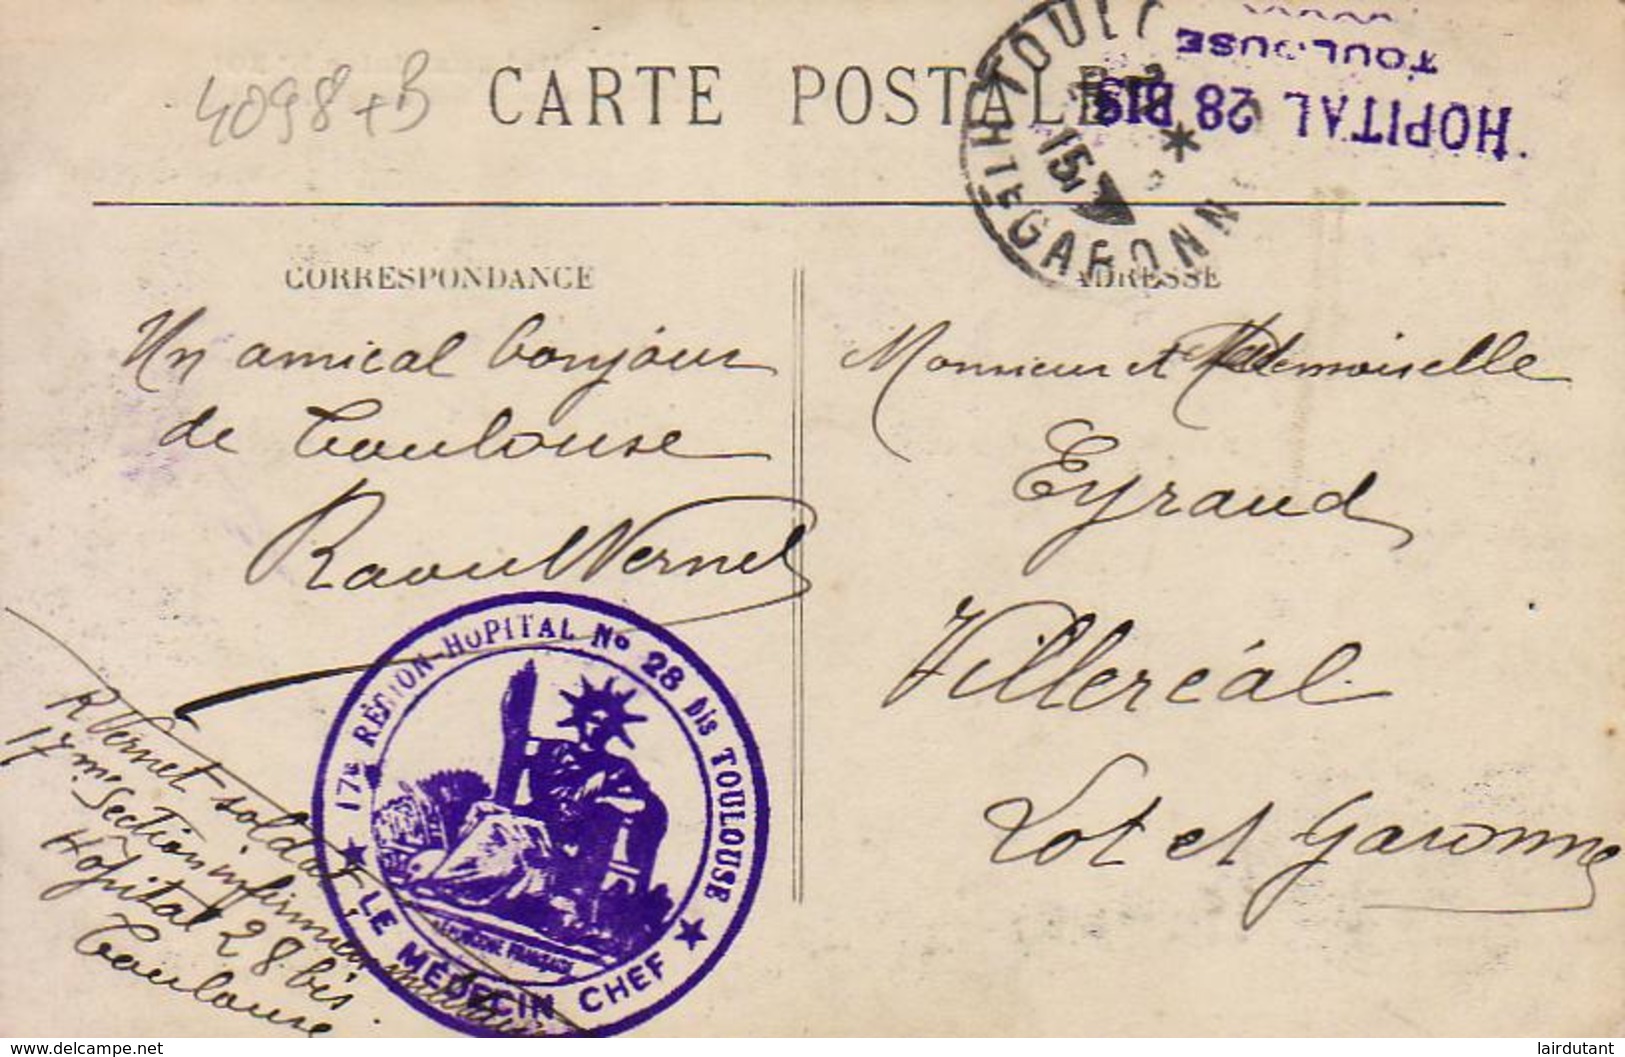 4098+B
CARTE POSTALE
TOUL
Hte GARONN
15
HOPITAL 28 BIS
TOULOUSE
CORRESPONDANCE
Un amical bonjour
de Toulouse
Raoul Vernet
R Vernet soldat
17me Section infirmiers militaires
Hôpital 28 bis
Toulouse
17e RÉGION - HOPITAL No 28 bis TOULOUSE
RÉPUBLIQUE FRANÇAISE
★ LE MÉDECIN CHEF ★
ADRESSE
Monsieur et Mademoiselle
Eyraud
Villeréal
Lot et Garonne
www.delcampe.net
lairdutant